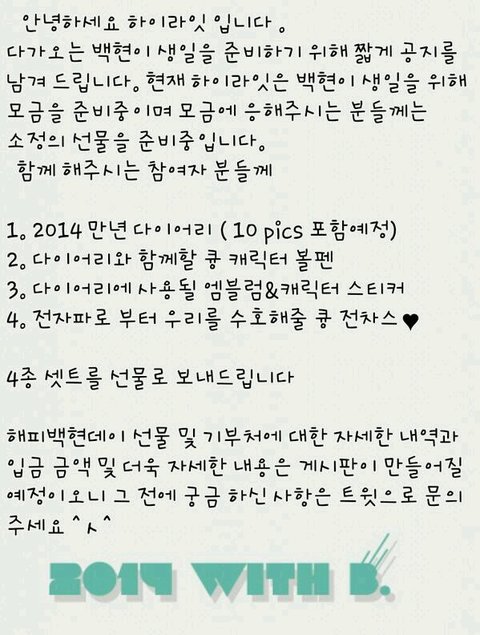 안녕하세요 하이라잇 입니다 。
다가오는 백현이 생일을 준비하기 위해 짧게 공지를
남겨 드립니다. 현재 하이라잇은 백현이 생일을 위해
모금을 준비중이며 모금에 응해주시는 분들께는
소정의 선물을 준비중입니다。
함께 해주시는 참여자 분들께
1。 2014 만년 다이어리 ( 10 pics 포함예정)
2。 다이어리와 함께할 큥 캐릭터 볼펜
3。 다이어리에 사용될 엠블럼&캐릭터 스티커
4。 전자파로 부터 우리를 수호해줄 큥 전차스♥
4종 셋트를 선물로 보내드립니다
해피백현데이 선물 및 기부처에 대한 자세한 내역과
입금 금액 및 더욱 자세한 내용은 게시판이 만들어질
예정이오니 그 전에 궁금 하신 사항은 트윗으로 문의
주세요 ^ㅅ^
2014 WITH B.